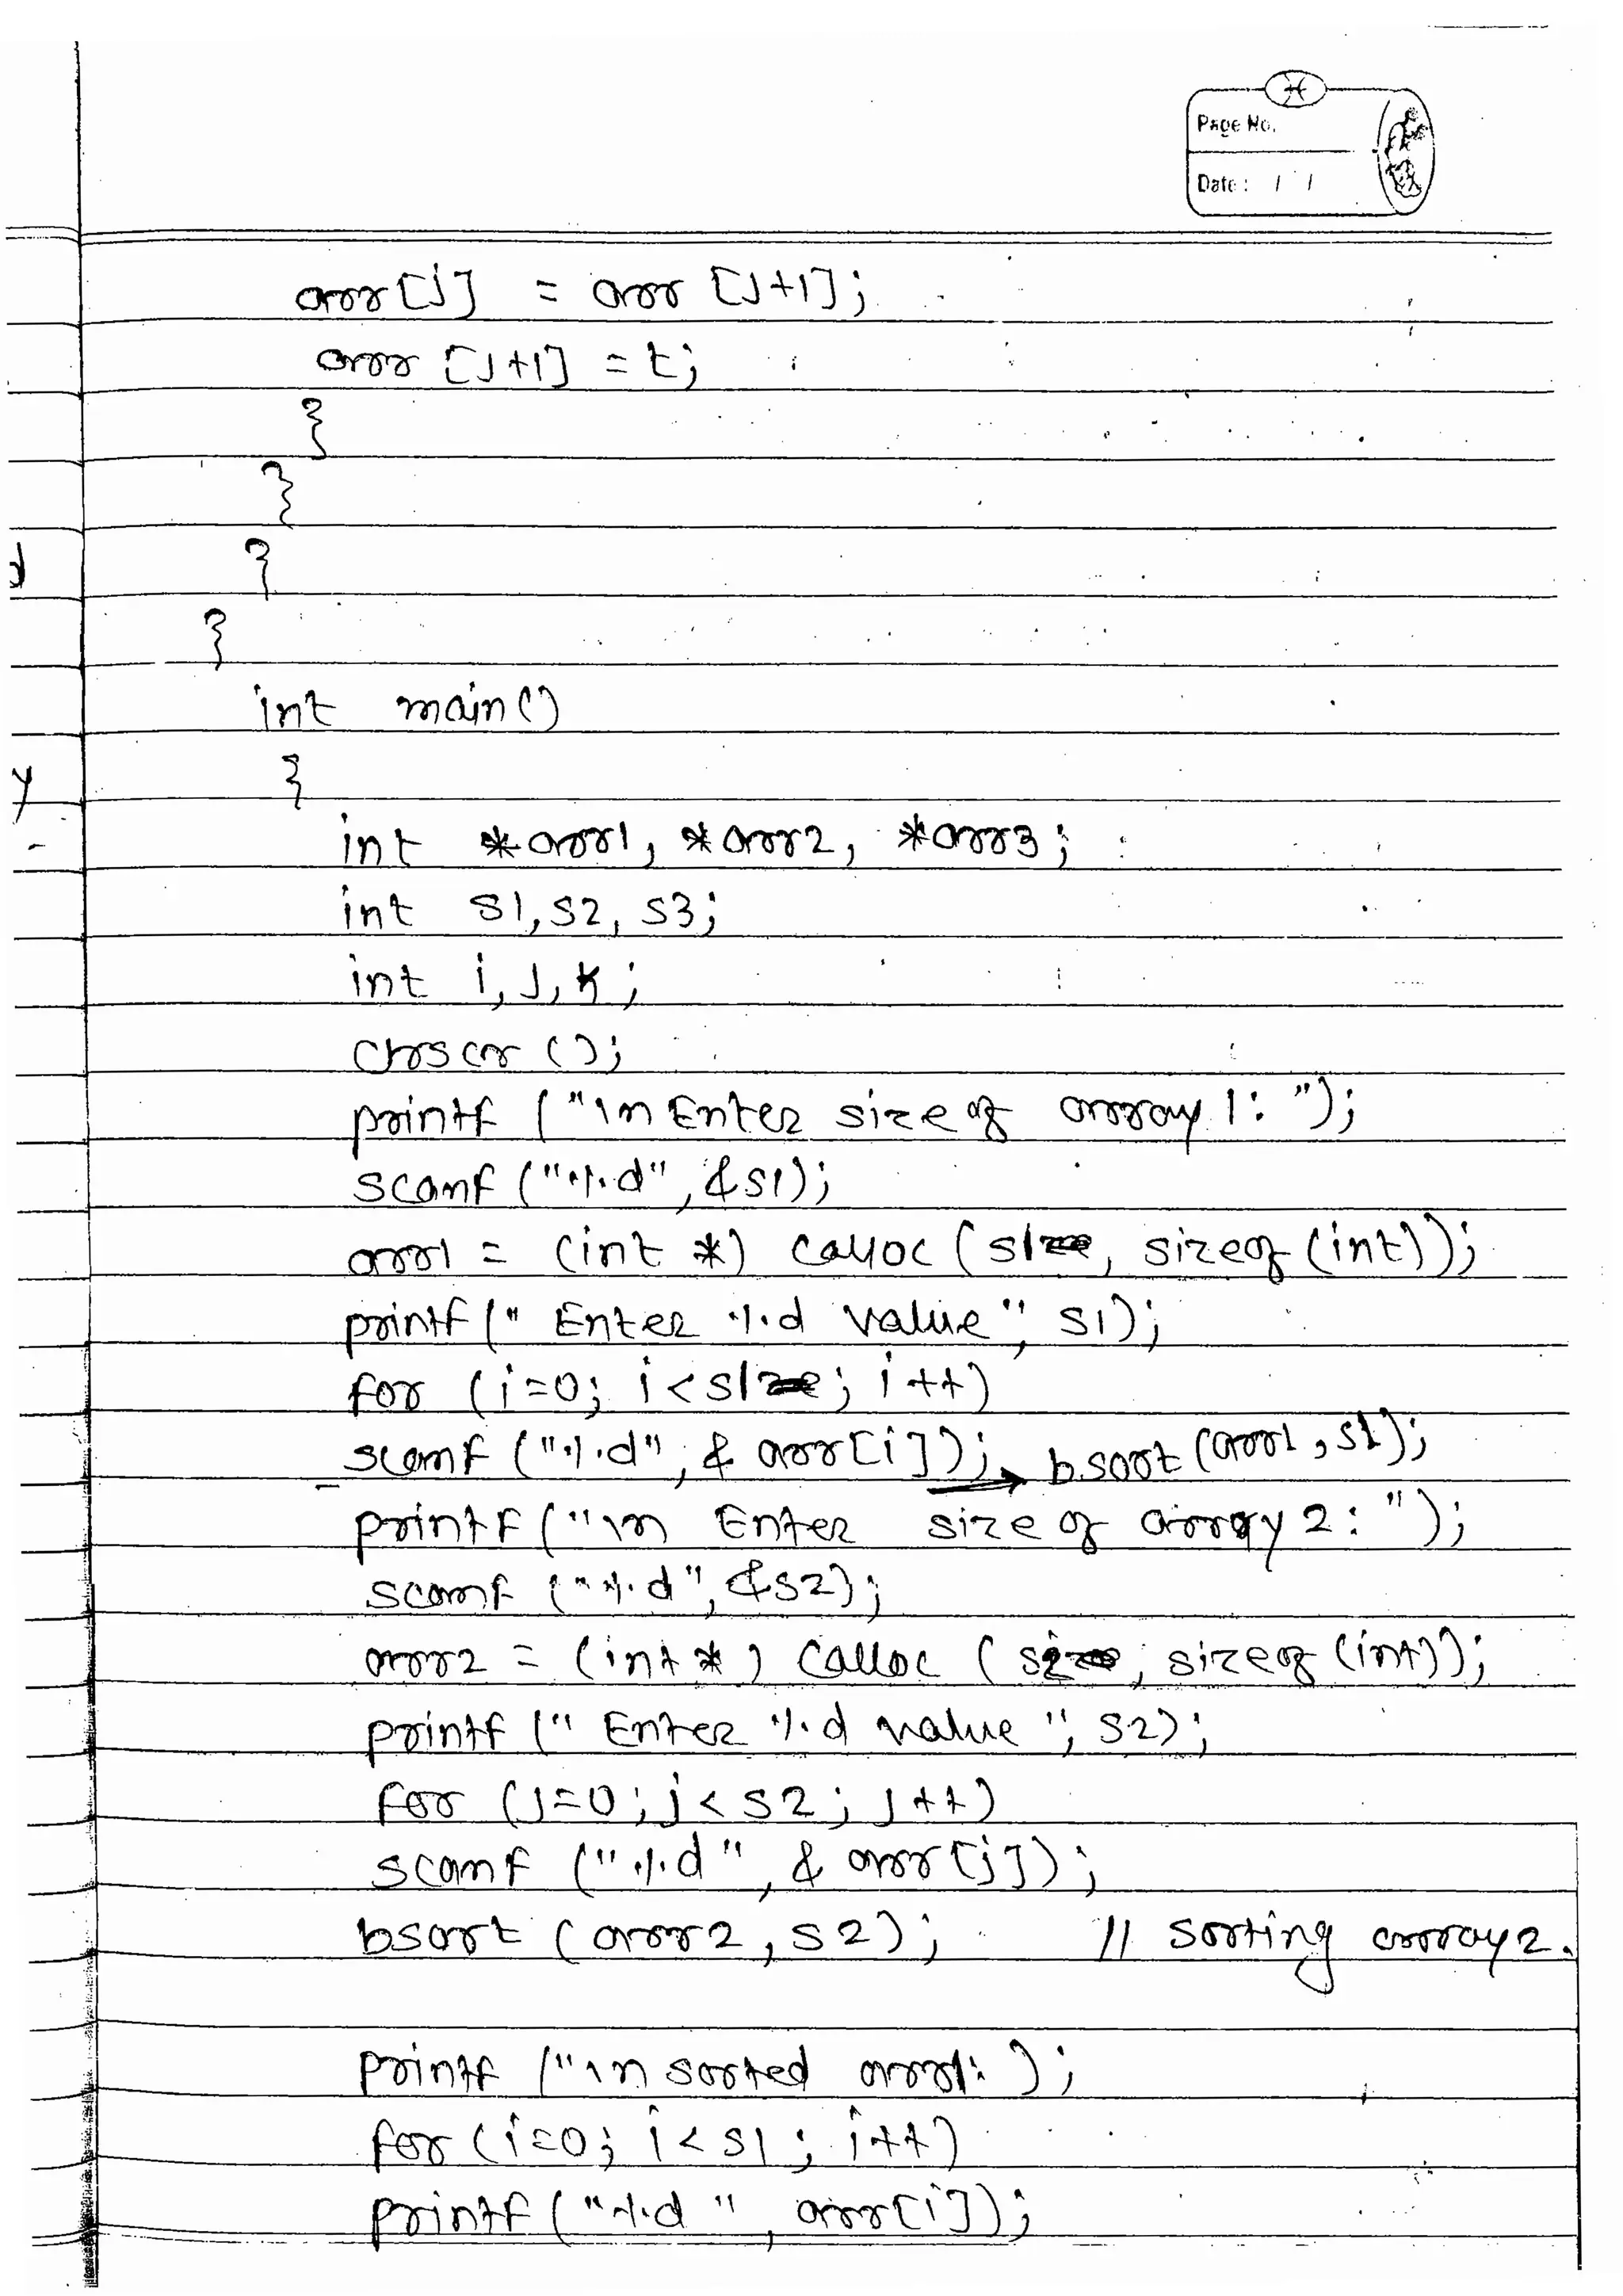 Page No.
Date : / /
arr[j] = arr [j+1];
arr [j+1] = t;
}
}
d
}
}
int main()
y
{
int *arr1, *arr2, *arr3;
int s1, s2, s3;
int i, j, k;
clrscr ();
printf ("\n Enter size of array 1: ");
scanf ("%d", &s1);
arr1 = (int *) calloc (s1, sizeof (int));
printf (" Enter %d value", s1);
for (i=0; i<s1; i++)
scanf ("%d", & arr[i]); → bsort (arr1, s1);
printf ("\n Enter size of array 2: ");
scanf ("%d", &s2);
arr2 = (int *) calloc (s2, sizeof (int));
printf (" Enter %d value ", s2);
for (j=0; j<s2; j++)
scanf ("%d", & arr[j]);
bsort (arr2, s2); // sorting array 2.
printf ("\n sorted arr1: );
for (i=0; i<s1; i++)
printf ("%d ", arr[i]);